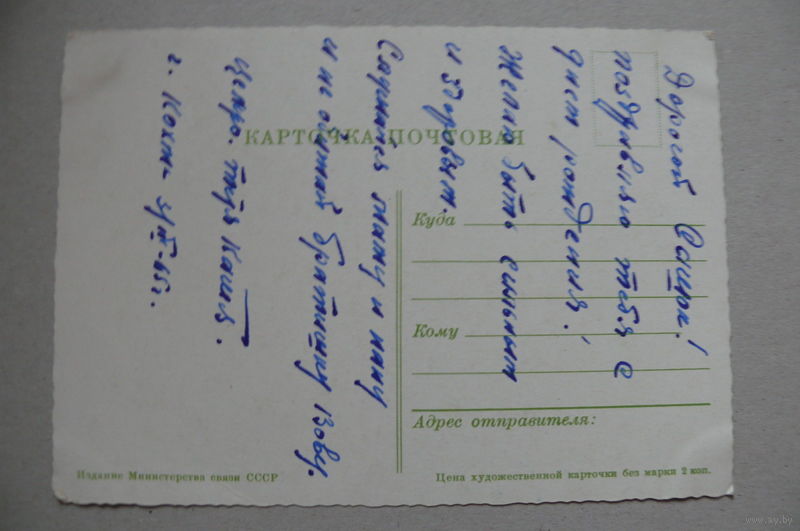 Дорогой !
поздравляю тебя с
днем рождения!
Желаю быть сильным
и здоровым.
Слушайся маму и папу
и не обижай братишку Вову.
Целую. тётя Катя.
г. Кохма
КАРТОЧКА ПОЧТОВАЯ
Куда
Кому
Адрес отправителя:
Издание Министерства связи СССР
Цена художественной карточки без марки 2 коп.
www.ay.by